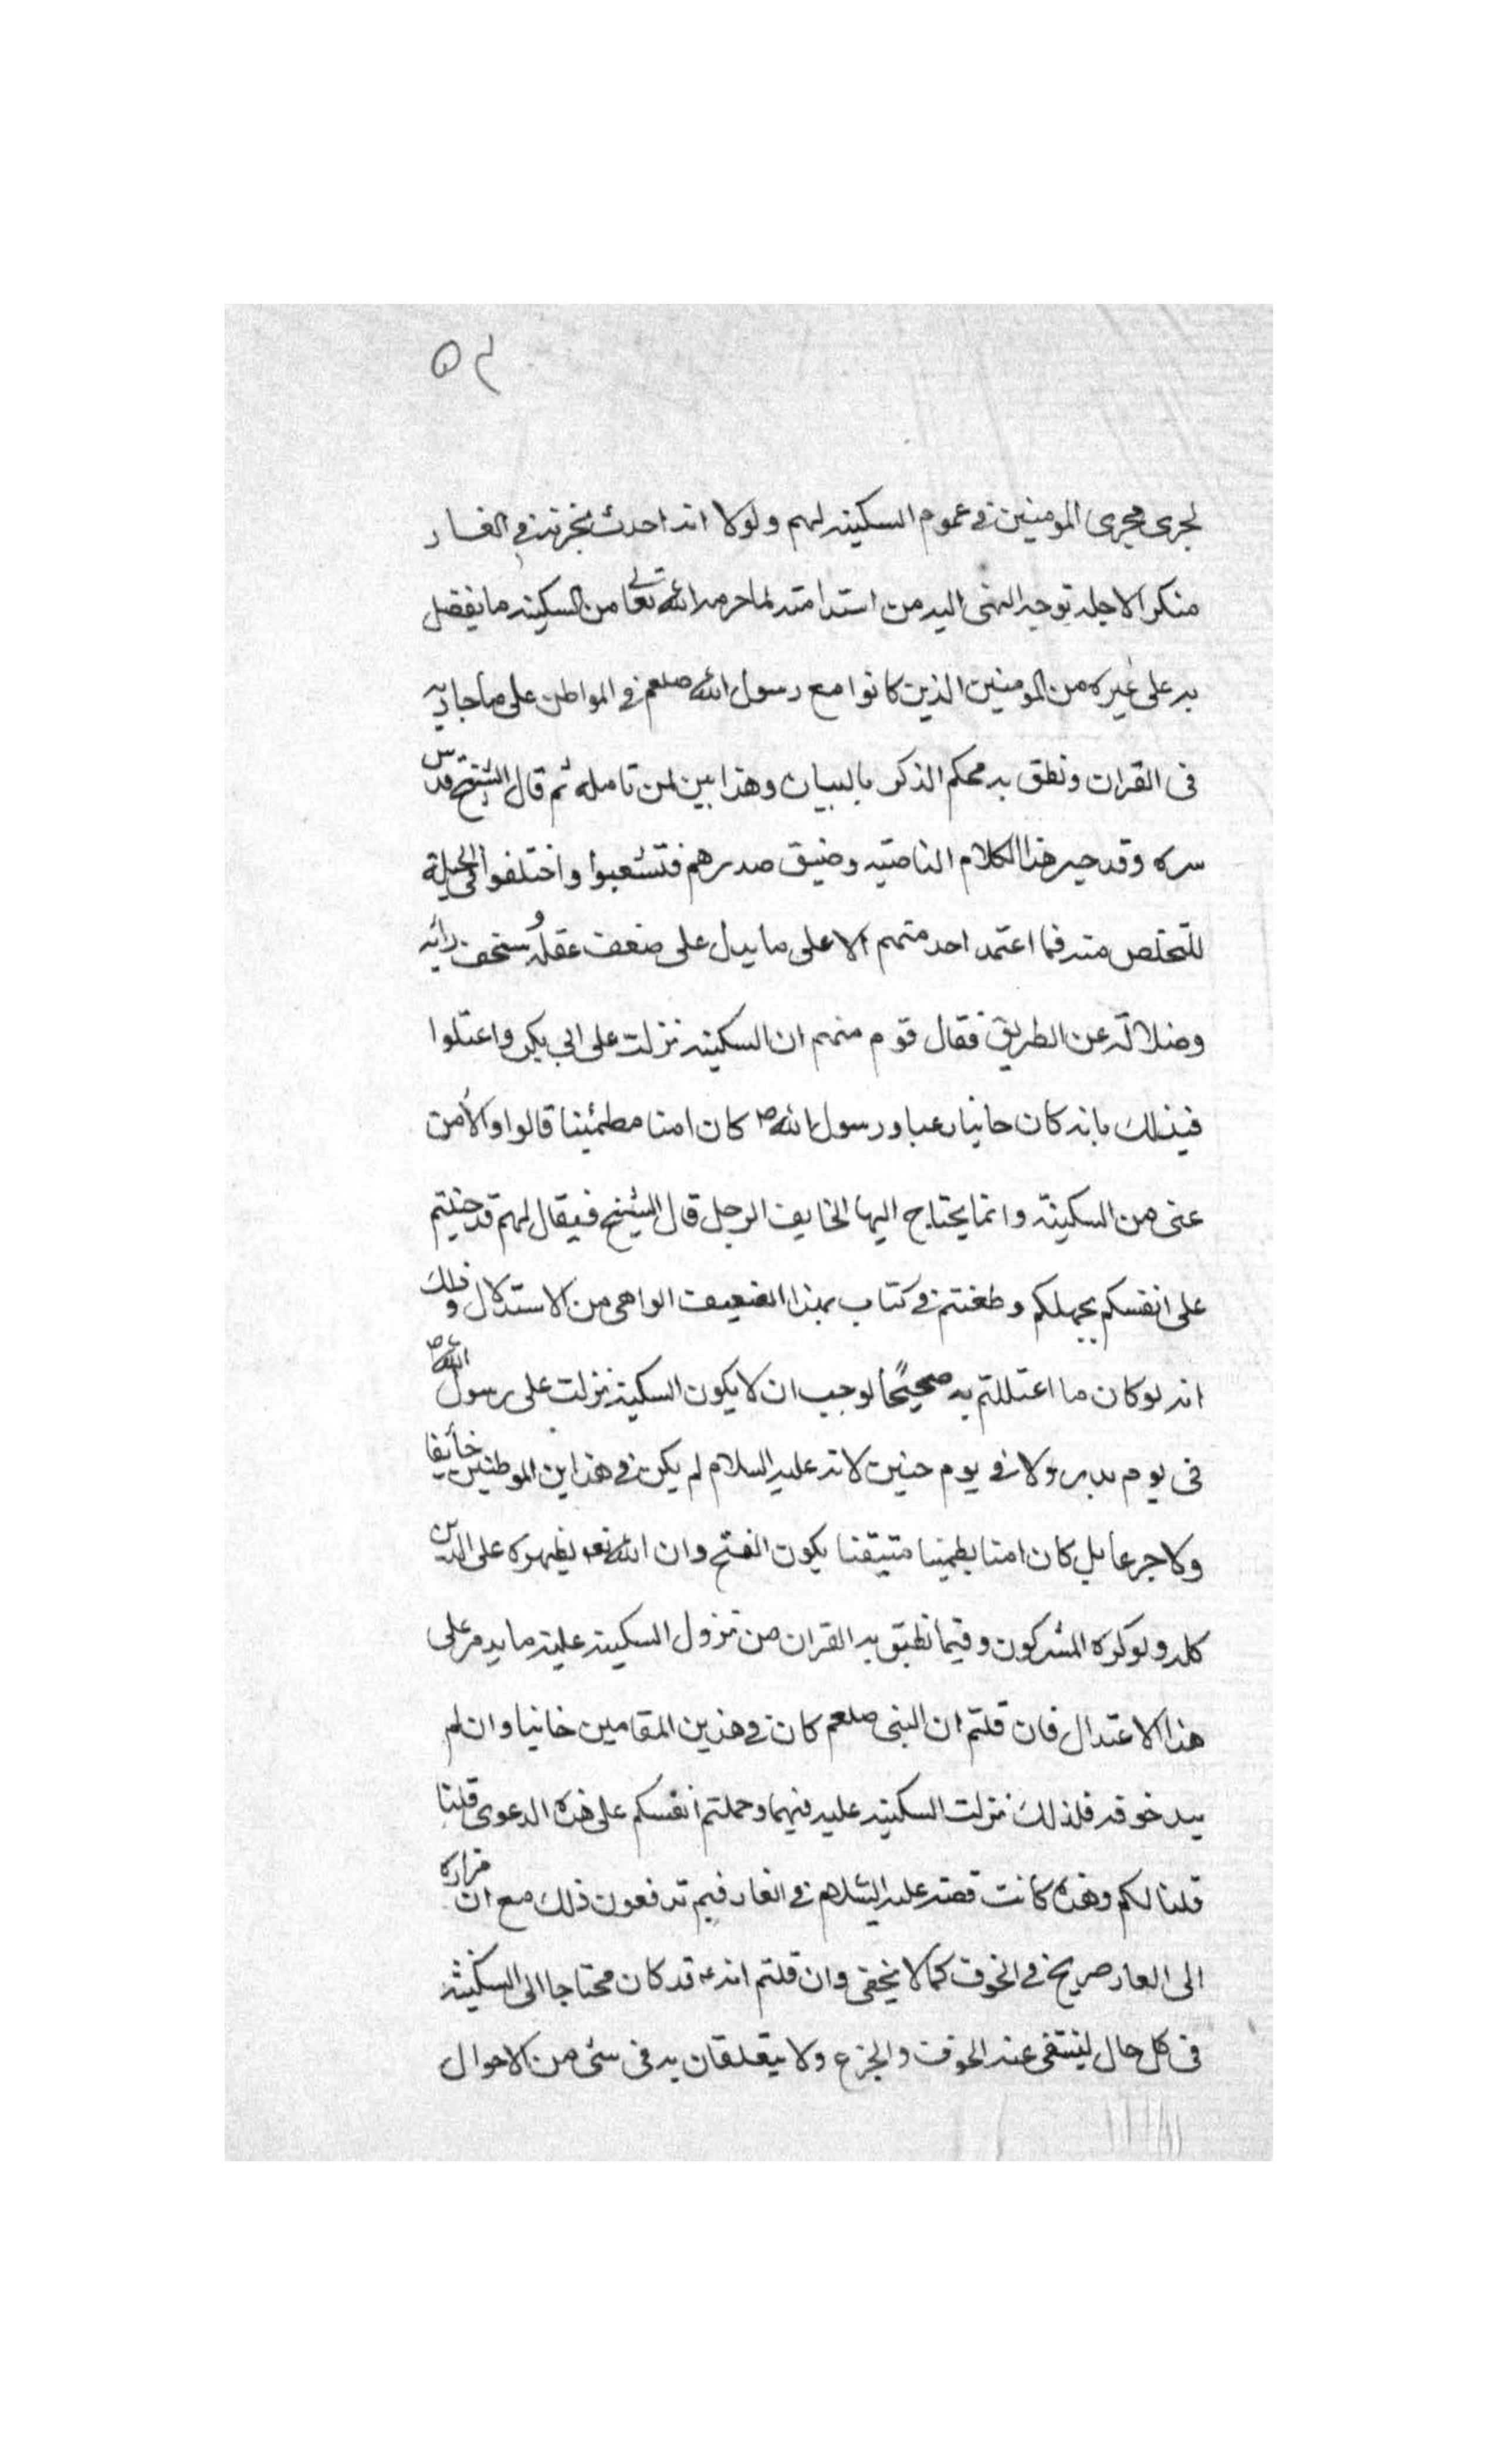 لجرى مجرى المومنين في عموم السكينه لهم ولولا انه احدث بحزنه في الغار
منكرا لاجله توجه النهى اليه من استدامته لما حرمه الله تعالى من السكينه ما يفضل
به على غيره من المومنين الذين كانوا مع رسول الله صلعم في المواطن على ما جا به
فى القران ونطق به محكم الذكر بالبيان وهذا بين لمن تامله ثم قال الشيخ قدس
سره وقد حير هذا الكلام الناصبه وضيق صدرهم فتشعبوا واختلفوا في الحيلة
للتخلص منه فما اعتمد احد منهم الا على ما يدل على ضعف عقله وسخف رائه
وضلاله عن الطريق فقال قوم منهم ان السكينه نزلت على ابي بكر واعتلوا
في ذلك بانه كان خايفا رعبا ورسول الله ص كان امنا مطمئنا قالوا والامن
غنى من السكينة وانما يحتاج اليها الخايف الوجل قال الشيخ فيقال لهم قد جنيتم
على انفسكم بجهلكم وطعنتم في كتاب بهذا الضعيف الواهى من الاستدلال وذلك
انه لو كان ما اعتللتم به صحيحًا لوجب ان لا يكون السكينه نزلت على رسول الله ص
فى يوم بدر ولا في يوم حنين لانه عليه السلام لم يكن في هذاين الموطنين خائفا
ولا جزعا بل كان امنا متيقنا يكون الفتح وان الله تعه يظهره على الدين
كله ولو كره المشركون وفيما نطق به القران من نزول السكينه عليه ما يدمر على
هذا الاعتدال فان قلتم ان النبى صلعم كان في هذين المقامين خايفا وان لم
يبد خوفه فلذلك نزلت السكينه عليه فيهما وحملتم انفسكم على هذه الدعوى قلنا
قلنا لكم وهذه كانت قصته عليه السلام في الغار فبم تدفعون ذلك مع ان فراره
الى الغار صريح في الخوف كما لا يخفى وان قلتم انه ع قد كان محتاجا الى السكينة
فى كل حال لينتفى عنه الخوف والجزع ولا يتعلقان به فى شى من الاحوال